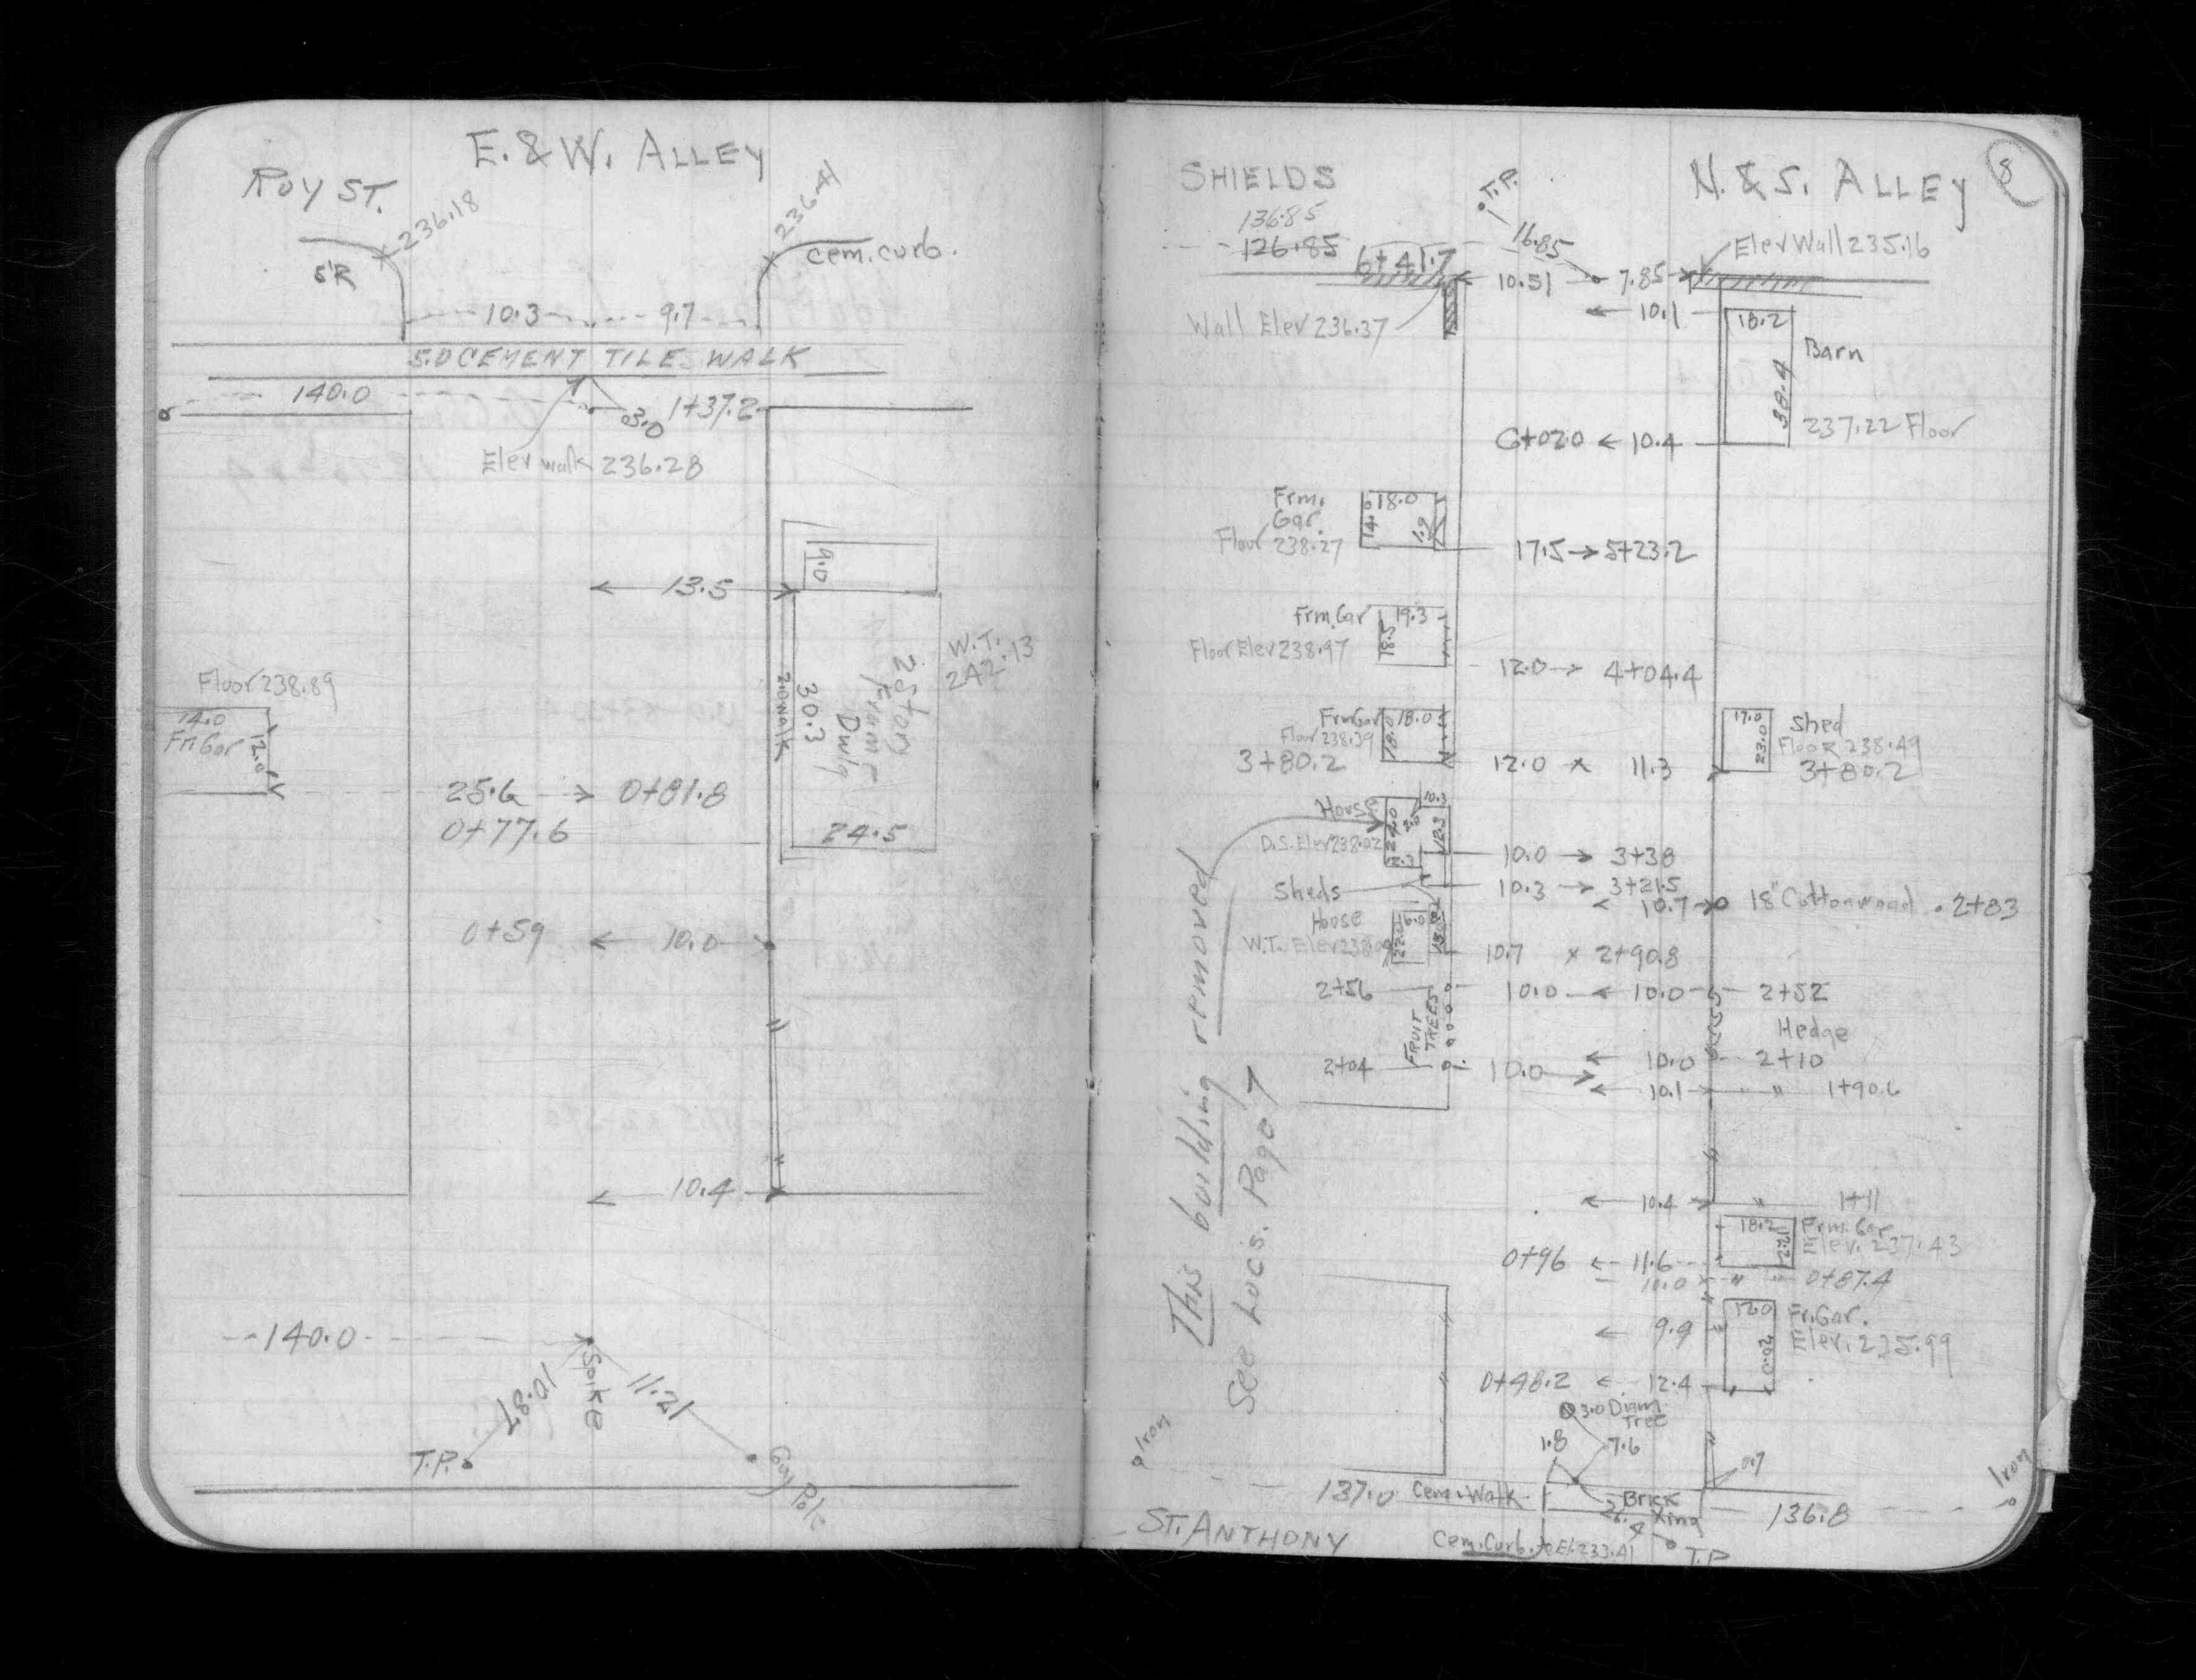 E. & W. ALLEY
ROY ST.
236.18
236.41
5'R
cem. curb.
10.3
9.7
5.0 CEMENT TILE WALK
140.0
3.0
1+37.2
Elev walk 236.28
9.0
13.5
W.T.
242.13
2 Story
Frame
Dwlg
30.3
2.0 WALK
24.5
Floor 238.89
14.0
Fr. Gar
12.0
25.6 → 0+81.8
0+77.6
0+59 ← 10.0
← 10.4
140.0
Spike
10.87
11.21
T.P.
Guy Pole
SHIELDS
N. & S. ALLEY
8
T.P.
136.85
126.85
6+41.7
16.85
Elev Wall 235.16
10.51
7.85
← 10.1
Wall Elev 236.37
18.2
Barn
38.4
237.22 Floor
6+02.0 ← 10.4
Frm.
Gar.
18.0
14.0
1.9
Floor 238.27
17.5 → 5+23.2
Frm. Gar
19.3
18.5
Floor Elev 238.97
12.0 → 4+04.4
Frm Gar
18.0
18.0
Floor 238.39
3+80.2
12.0 × 11.3
17.0
23.0
Shed
Floor 238.49
3+80.2
House
10.3
D.S. Elev 238.02
10.0 → 3+38
Sheds
10.3 → 3+21.5
← 10.7 → 18" Cottonwood . 2+83
House
16.0
22.0
W.T. Elev 238.09
10.7 × 2+90.8
2+56
10.0 ← 10.0 2+52
FRUIT
TREES
Hedge
← 10.0 2+10
2+04
10.0 →
← 10.1 → " " 1+90.6
This building removed
See Locs. Page 7
← 10.4 → " 1+11
18.2
12.2
Frm. Gar
Elev. 237.43
0+96 ← 11.6
10.0 × " " 0+87.4
12.0
20.0
Fr. Gar.
Elev. 235.99
← 9.9
0+48.2 ← 12.4
3.0 Diam.
Tree
1.8
7.6
0.7
Iron
Iron
137.0
Cem. Walk
Brick
Xing
136.8
ST. ANTHONY
Cem. Curb. El. 233.41
T.P.